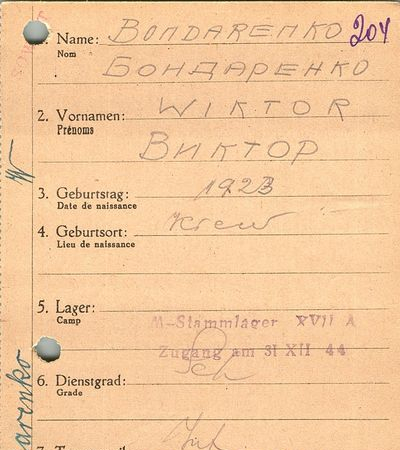 1. Name: BONDARENKO 204
Nom
БОНДАРЕНКО
2. Vornamen: WIKTOR
Prénoms
ВИКТОР
3. Geburtstag: 1923
Date de naissance
4. Geburtsort: Kiew
Lieu de naissance
5. Lager: M-Stammlager XVII A
Camp
Zugang am 31 XII 44
6. Dienstgrad:
Grade
arenko